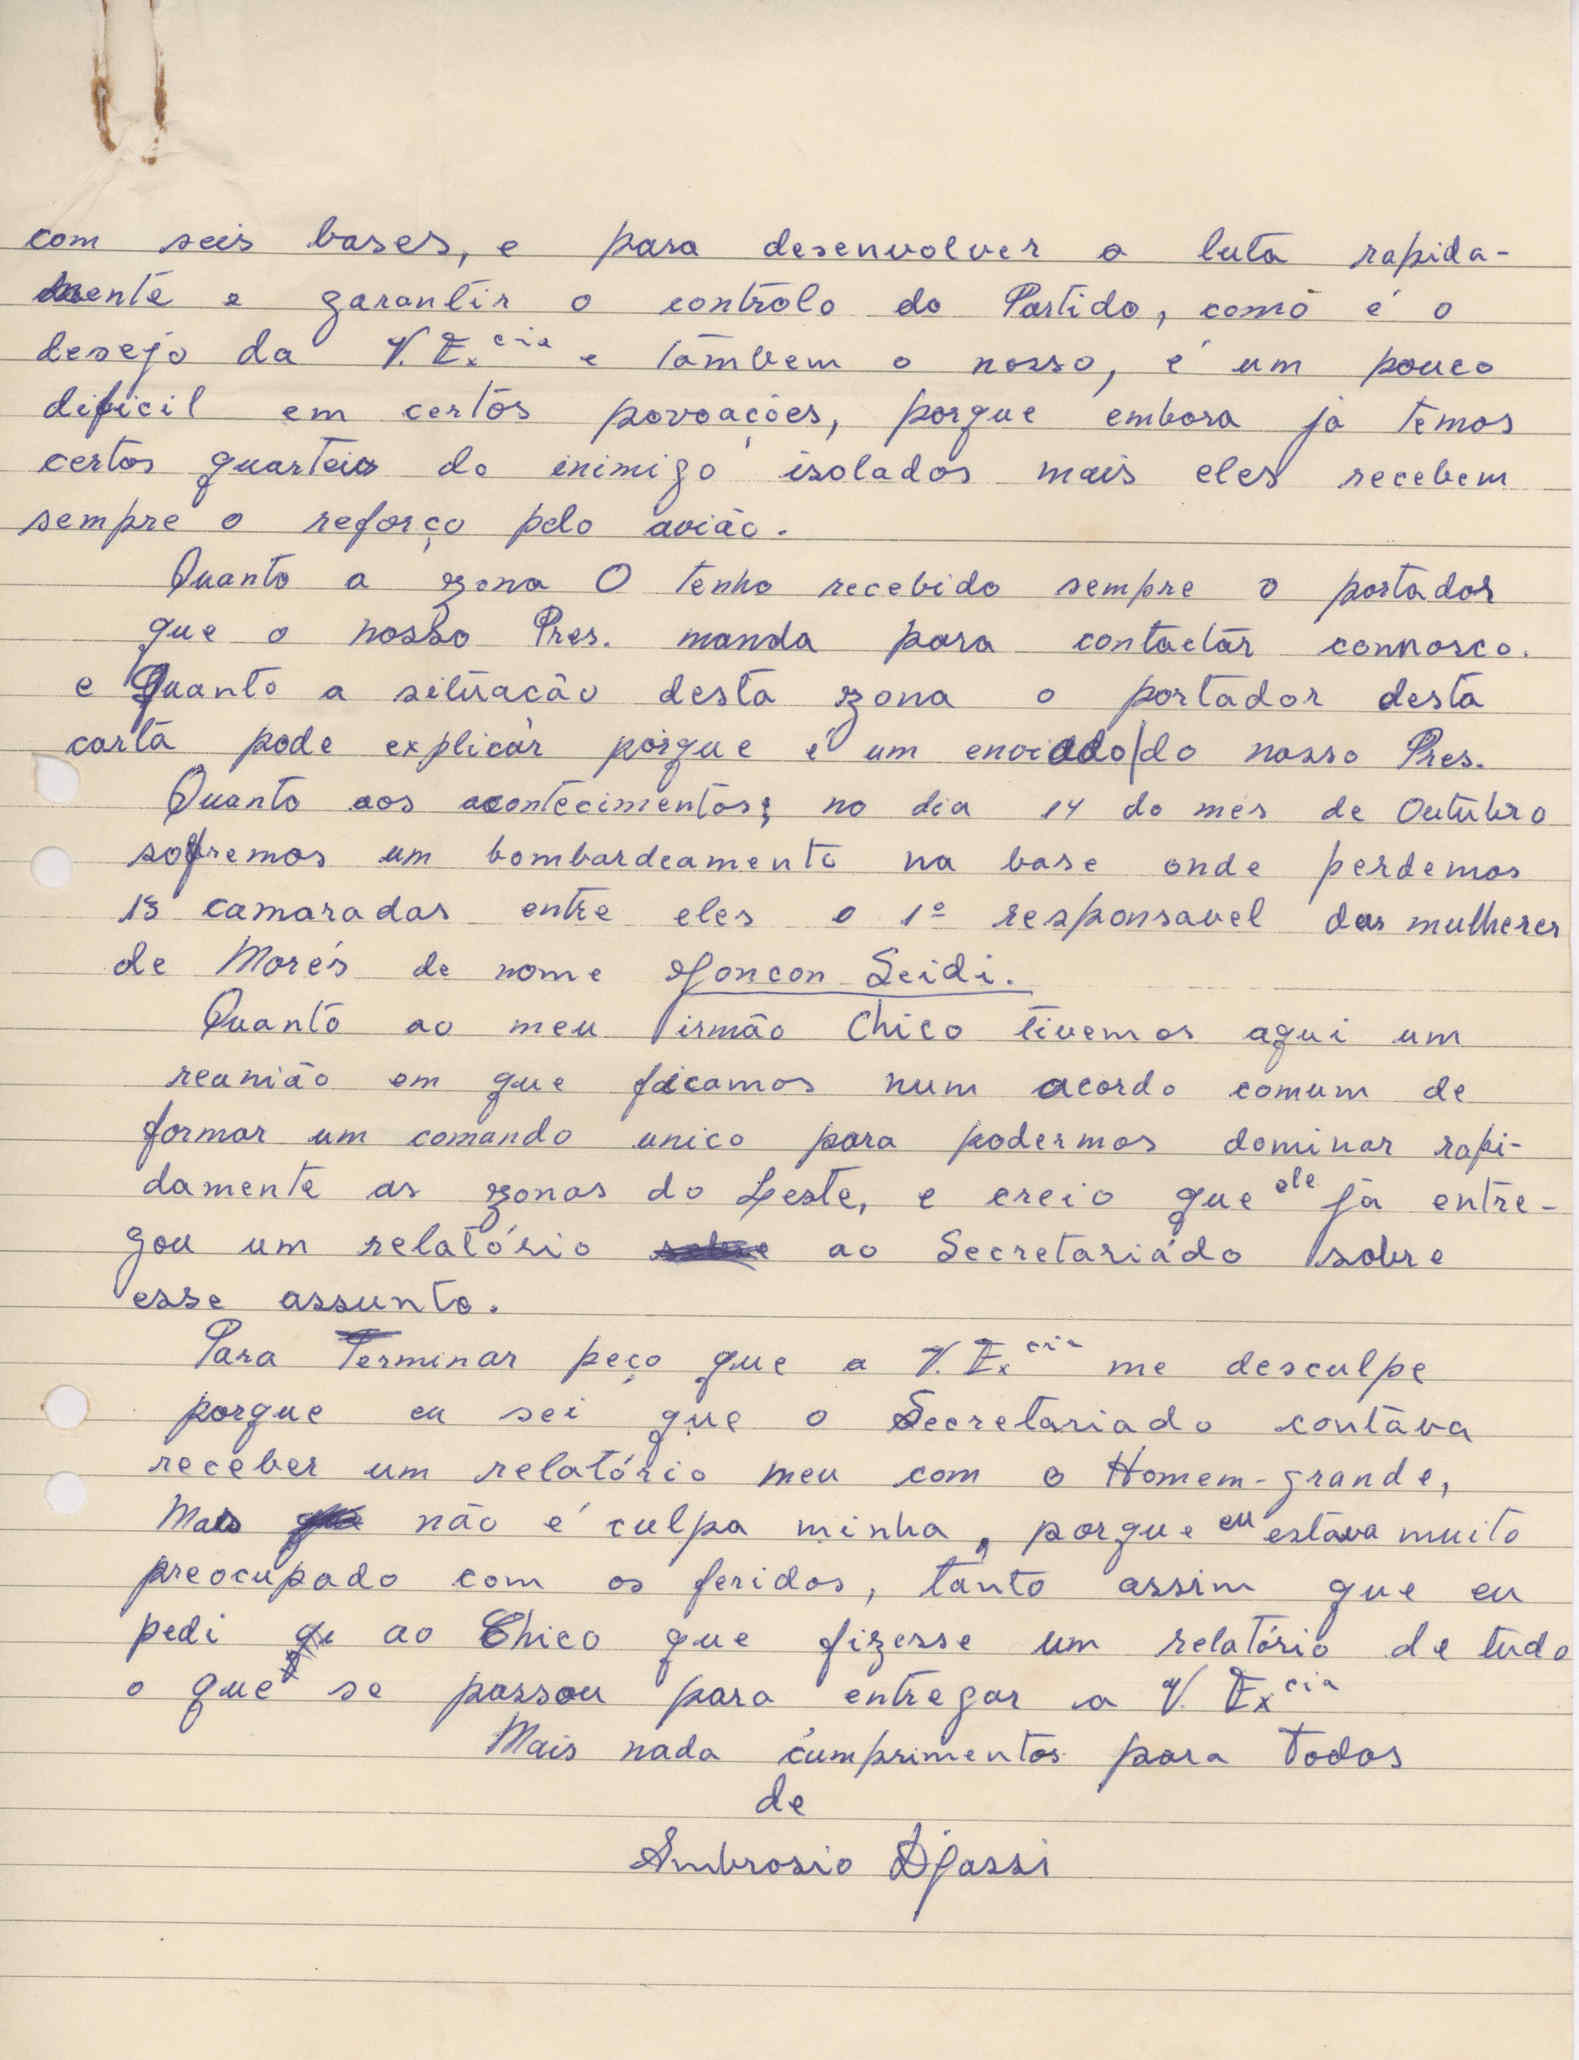 com seis bases, e para desenvolver a luta rapida-
mente e garantir o contrôlo do Partido, como é o
desejo da V. Ex.cia e tâmbem o nosso, é um pouco
dificil em certos povoações, porque embora já temos
certos quarteis do inimigo isolados mais eles recebem
sempre o reforço pelo avião.
Quanto a zona O tenho recebido sempre o portador
que o nosso Pres. manda para contactar connosco.
e Quanto a situacão desta zona o portador desta
carta pode explicár porque é um enviado do nosso Pres.
Quanto aos acontecimentos; no dia 14 do mês de Outubro
sofremos um bombardeamento na base onde perdemos
13 camaradas entre eles o 1º responsavel das mulheres
de Morés de nome Joncon Seidi.
Quanto ao meu irmão Chico tivemos aqui um
reunião em que ficamos num acordo comum de
formar um comando unico para podermos dominar rapi-
damente as zonas do Leste, e creio que ele já entre-
gou um relatório sobre ao Secretariádo sobre
esse assunto.
Para Terminar peço que a V. Ex.cia me desculpe
porque eu sei que o Secretariado contáva
receber um relatório meu com o Homem-grande,
Mas não é culpa minha, porque eu estava muito
preocupado com os feridos, tanto assim que eu
pedi ao Chico que fizesse um relatório de tudo
o que se passou para entregar a V. Ex.cia
Mais nada cumprimentos para todos
de
Ambrosio Djassi